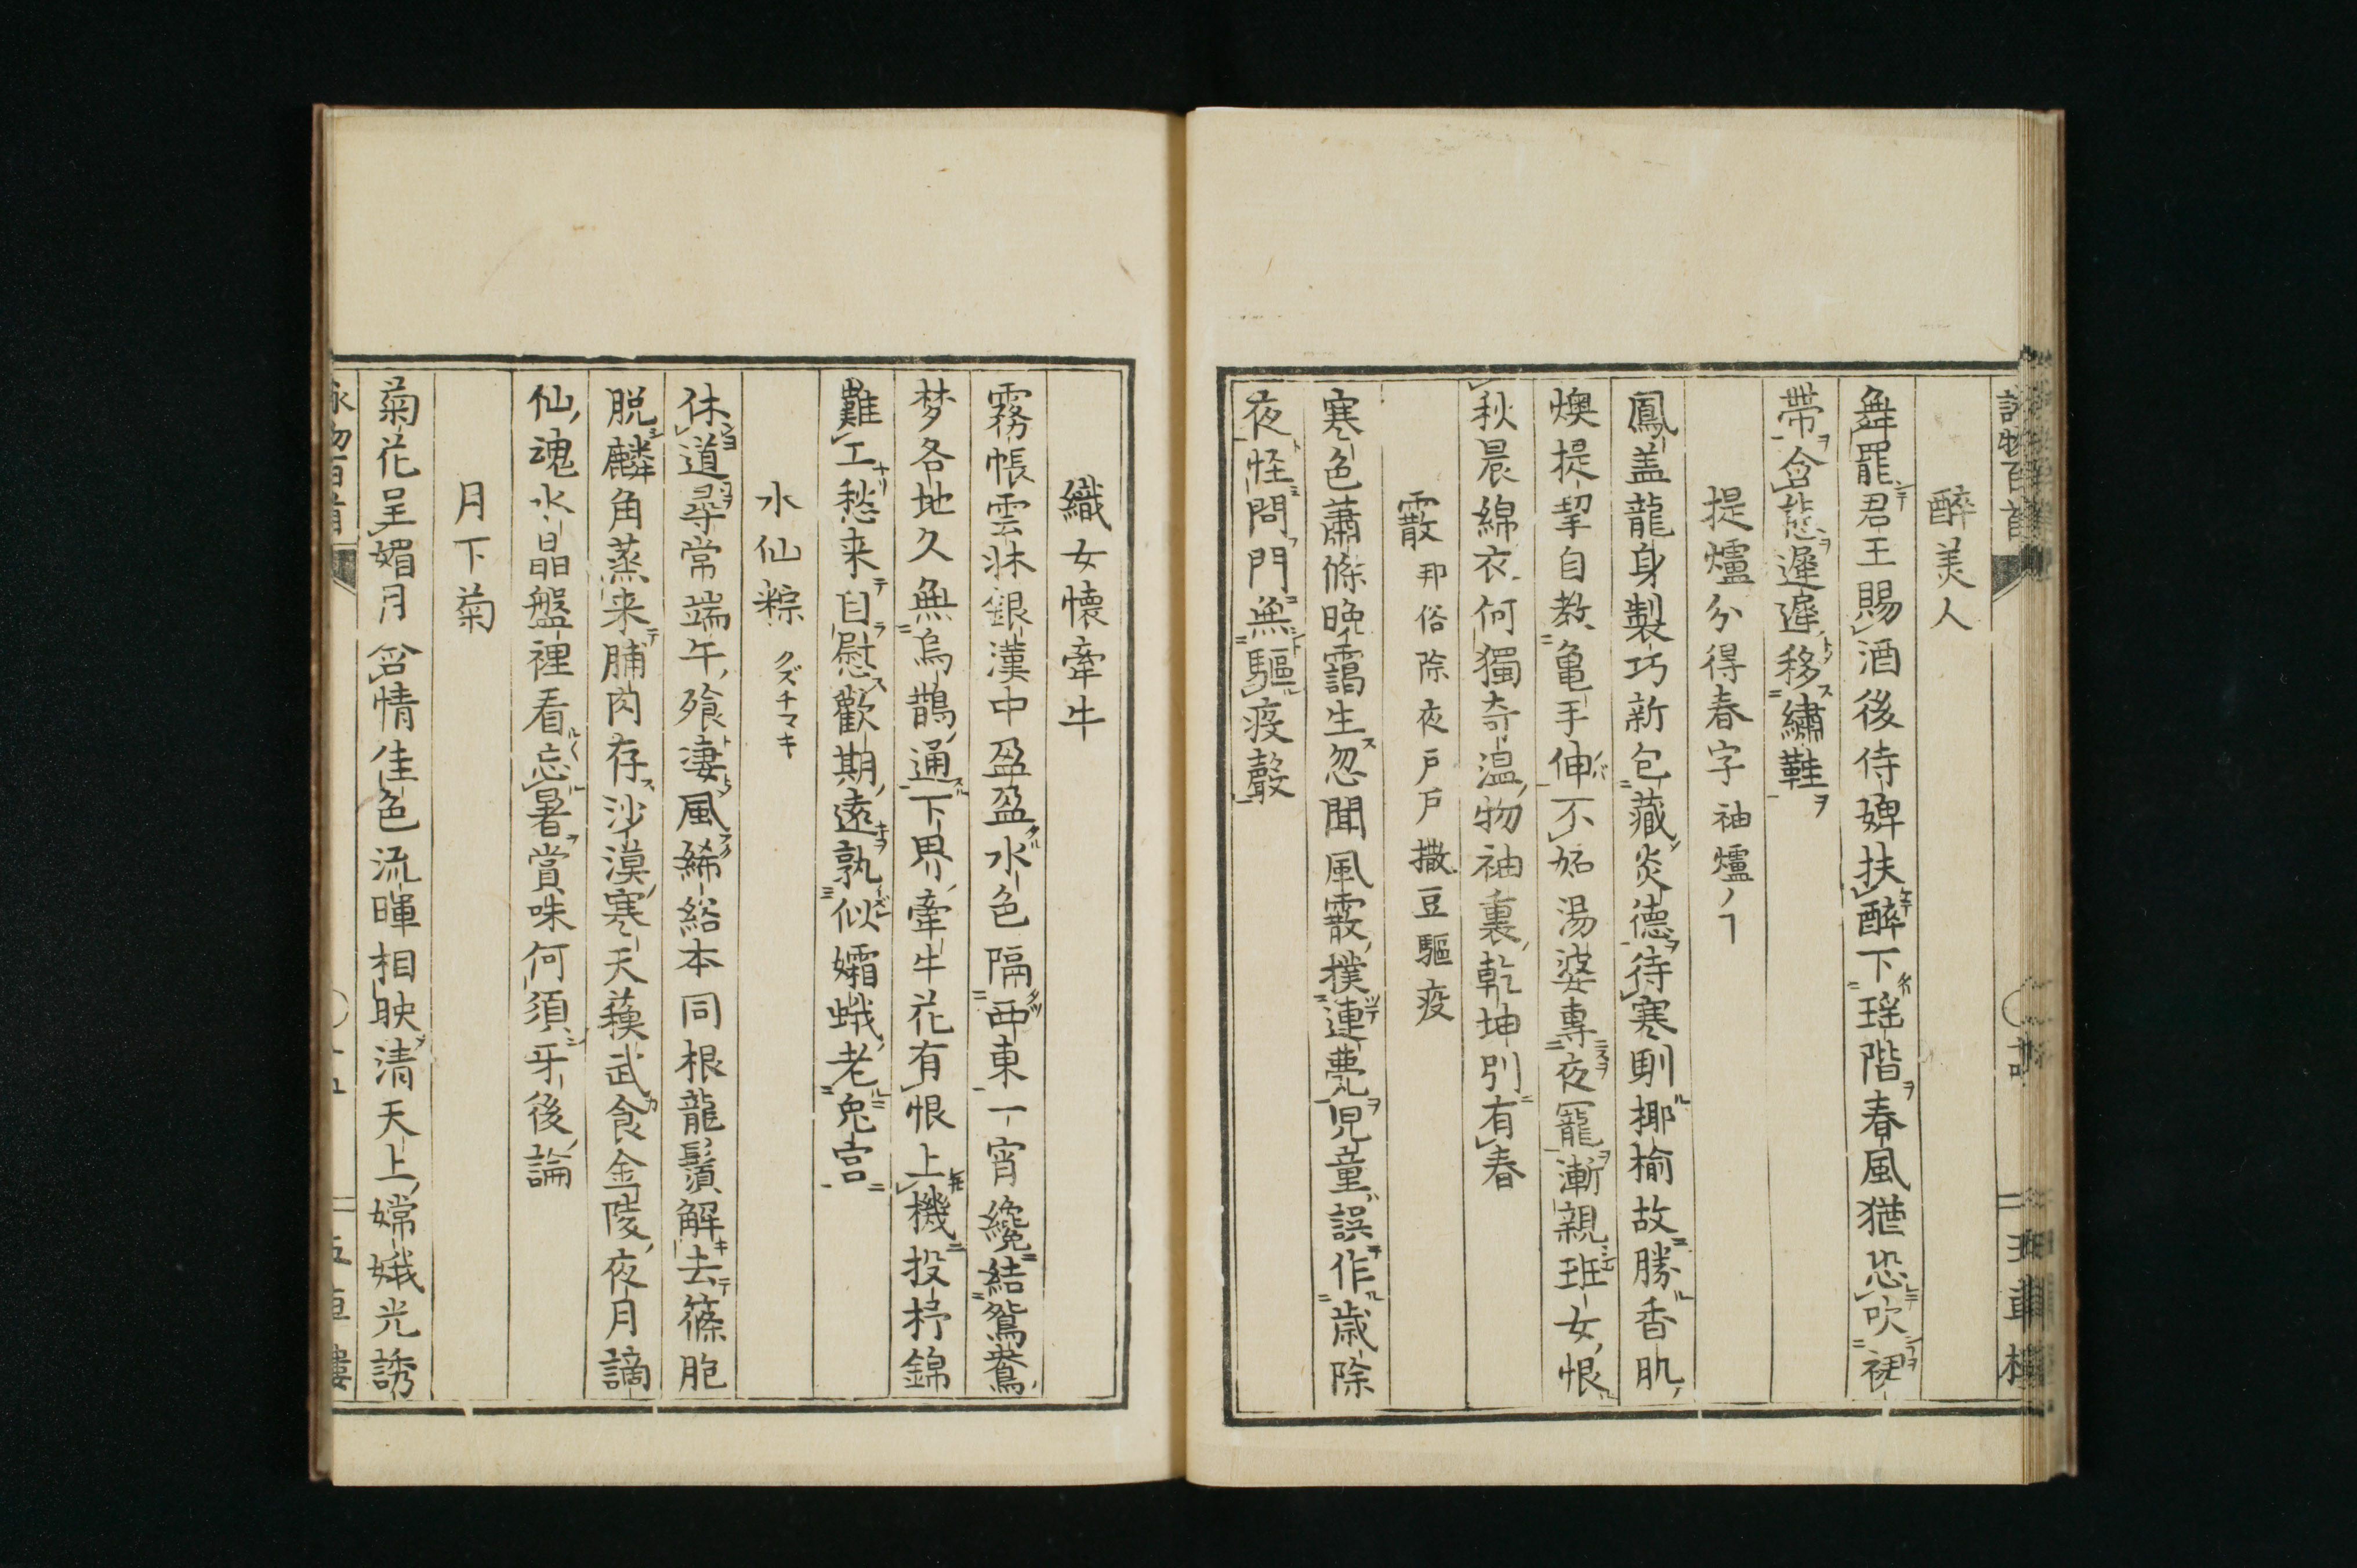 醉美人
舞罷君王賜酒後侍婢扶醉下瑶階春風猶恐吹裙
帶含態遲遲移繡鞋
提爐分得春字袖爐ノヿ
鳳盖龍身製巧新包藏炎德待寒馴揶揄故勝香肌
燠提挈自教亀手伸不妬湯婆專夜寵漸親班女恨
秋晨綿衣何獨奇温物袖裏乾坤別有春
霰邦俗除夜戸戸撒豆驅疫
寒色蕭條晩靄生忽聞風霰撲連甍児童誤作歳除
夜怪問門無驅疫聲
織女懐牽牛
霧帳雲牀銀漢中盈盈水色隔西東一宵纔結鴛鴦
梦各地久無烏鵲通下界牽牛花有恨上機投杼錦
難工愁来自慰歡期遠孰似孀蛾老兔宮
水仙粽クズチマキ
休道尋常端午飱凄風絺綌本同根龍鬚解去篠胞
脱麟角蒸来脯肉存沙漠寒天蘓武食金陵夜月謫
仙魂水晶盤裡看忘暑賞味何須牙後論
月下菊
菊花呈媚月含情佳色流暉相映清天上嫦娥光誘